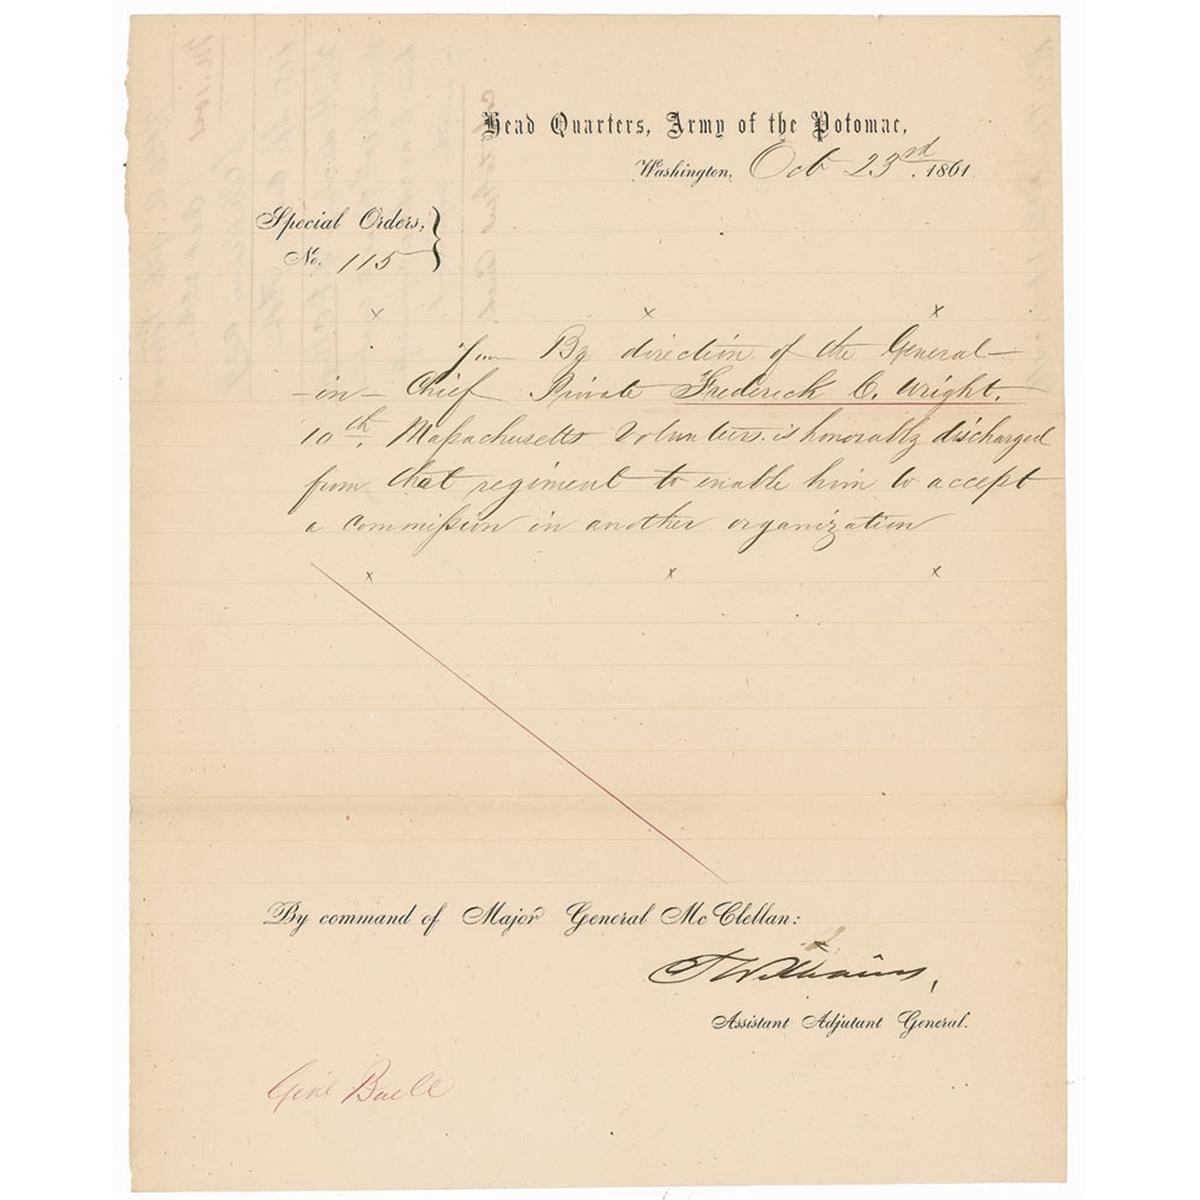 Head Quarters, Army of the Potomac,
Washington, Oct 23rd. 1861
Special Orders,
No. 115
x x x
By direction of the General-
-in-Chief Private Frederick C. Wright.
10th. Massachusetts Volunteers. is honorably discharged
from that regiment to enable him to accept
a commission in another organization
x x x
By command of Major General McClellan:
S Williams,
Assistant Adjutant General.
Genl Buell